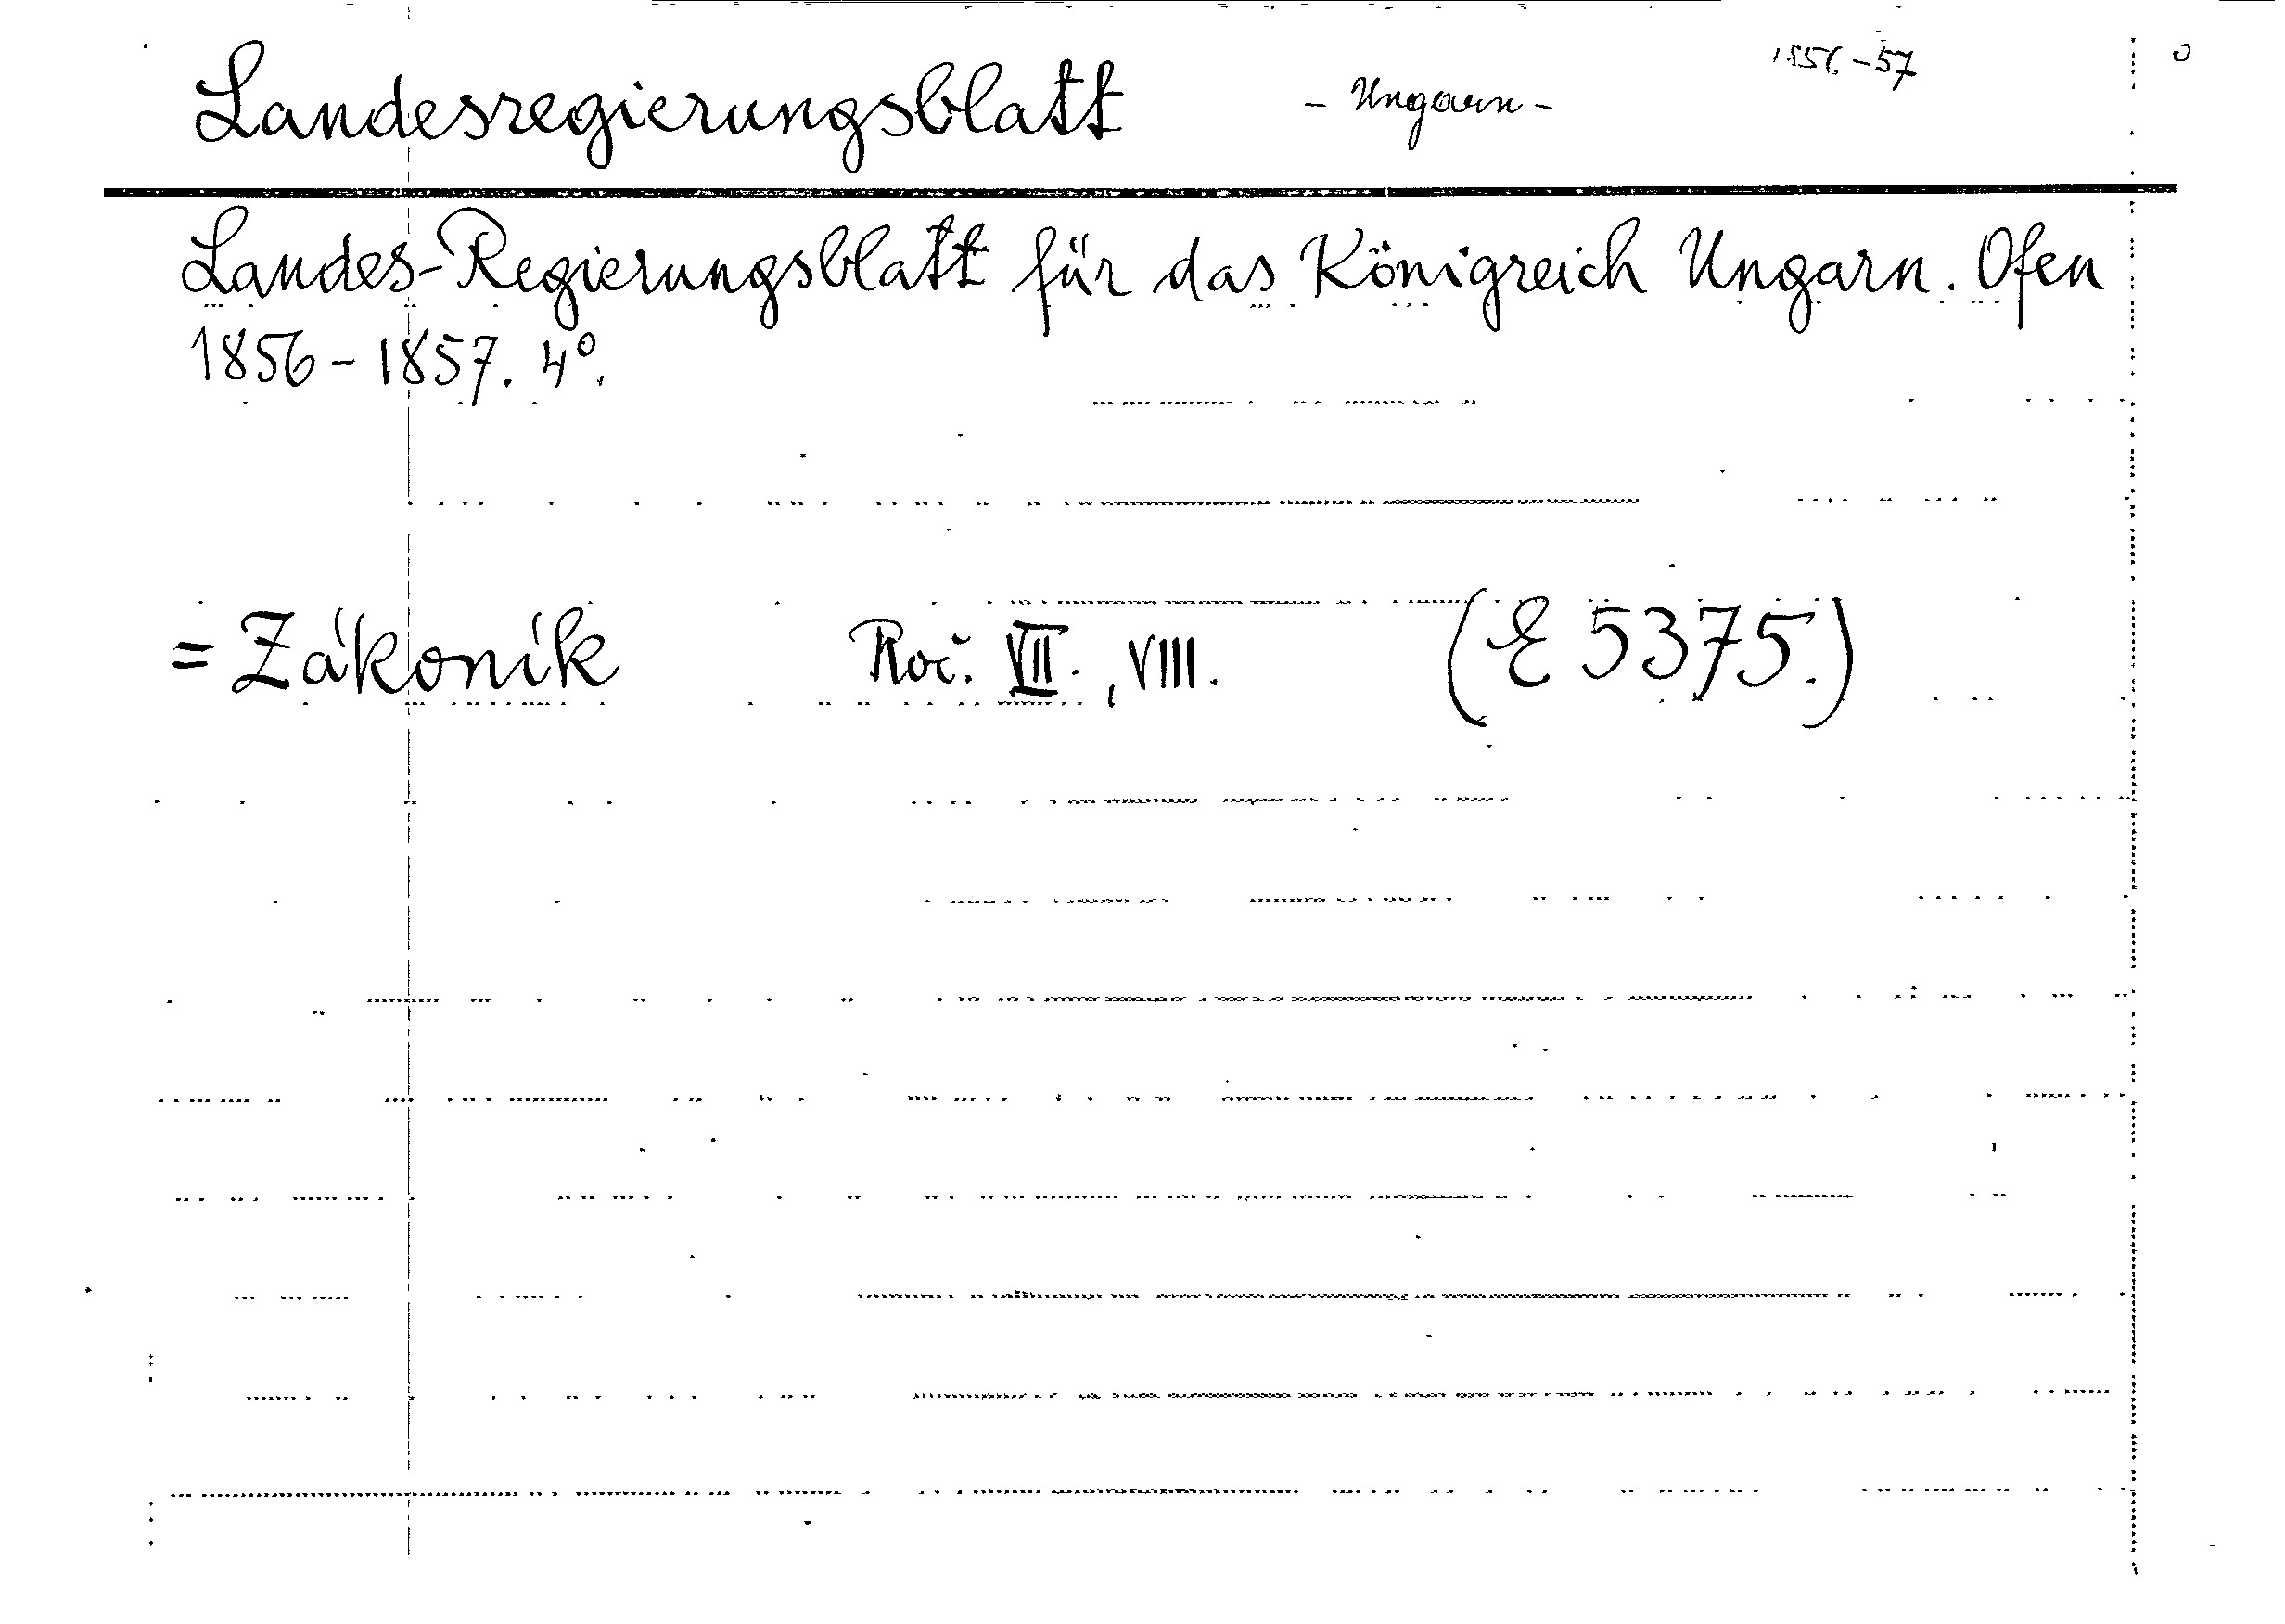 Landesregierungsblatt - Ungarn - 1856-57
Landes-Regierungsblatt für das Königreich Ungarn. Ofen
1856-1857. 4°.
= Zákoník Roč. VII., VIII. (E 5375.)